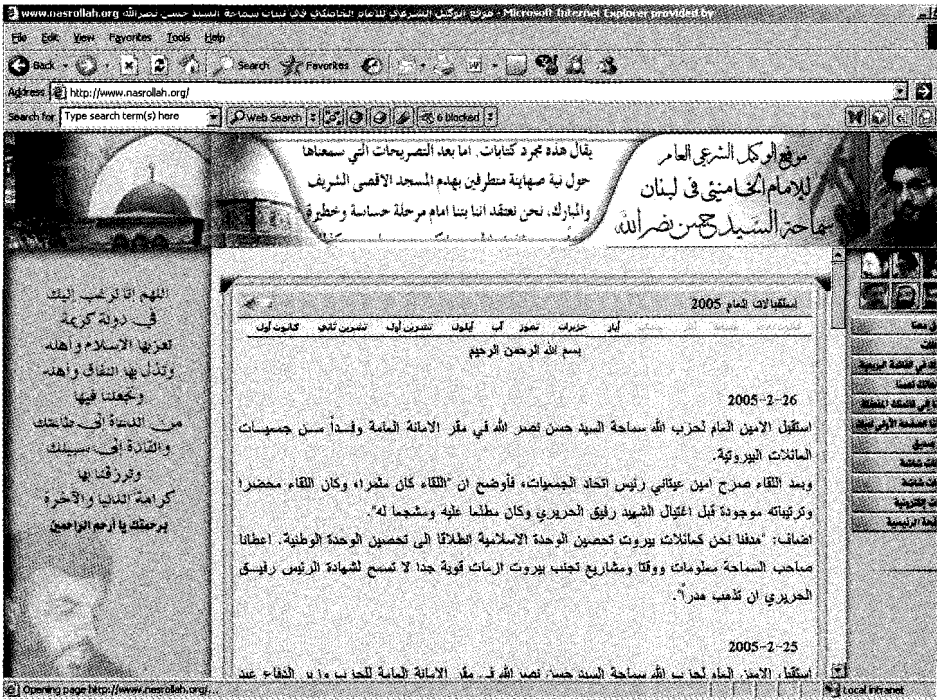 www.nasrollah.org موقع الوكيل الشرعي للامام الخامنئي في لبنان سماحة السيد حسن نصرالله - Microsoft Internet Explorer provided by
File Edit View Favorites Tools Help
Back Search Favorites
Address http://www.nasrollah.org/
Search for Type search term(s) here Web Search 6 blocked
يقال هذه مجرد كتابات. اما بعد التصريحات التي سمعناها
حول نية صهاينة متطرفين بهدم المسجد الاقصى الشريف
والمبارك، نحن نعتقد اننا بتنا امام مرحلة حساسة وخطيرة
موقع الوكيل الشرعي العام
للإمام الخامنئي في لبنان
سماحة السيد حسن نصر الله
اللهم انا نرغب اليك
في دولة كريمة
تعز بها الاسلام و اهله
وتذل بها النفاق و اهله
وتجعلنا فيها
من الدعاة الى طاعتك
والقادة الى سبيلك
وترزقنا بها
كرامة الدنيا والآخرة
برحمتك يا أرحم الراحمين
استقبالات العام 2005
أيار حزيران تموز آب أيلول تشرين أول تشرين ثاني كانون أول
بسم الله الرحمن الرحيم
2005-2-26
استقبل الامين العام لحزب الله سماحة السيد حسن نصر الله في مقر الامانة العامة وفداً من جمعيات
العائلات البيروتية.
وبعد اللقاء صرح امين عيتاني رئيس اتحاد الجمعيات، فأوضح ان "اللقاء كان مثمرا، وكان اللقاء محضرا
وترتيباته موجودة قبل اغتيال الشهيد رفيق الحريري وكان مطلعا عليه ومشجعا له".
اضاف: "هدفنا نحن كعائلات بيروت تحصين الوحدة الاسلامية انطلاقا الى تحصين الوحدة الوطنية. اعطانا
صاحب السماحة معلومات ووقتا ومشاريع تجنب بيروت ازمات قوية جدا لا تسمح لشهادة الرئيس رفيق
الحريري ان تذهب هدراً".
2005-2-25
استقبل الامين العام لحزب الله سماحة السيد حسن نصر الله في مقر الامانة العامة للحزب وزير الدفاع عبد
Opening page http://www.nasrollah.org/... Local intranet